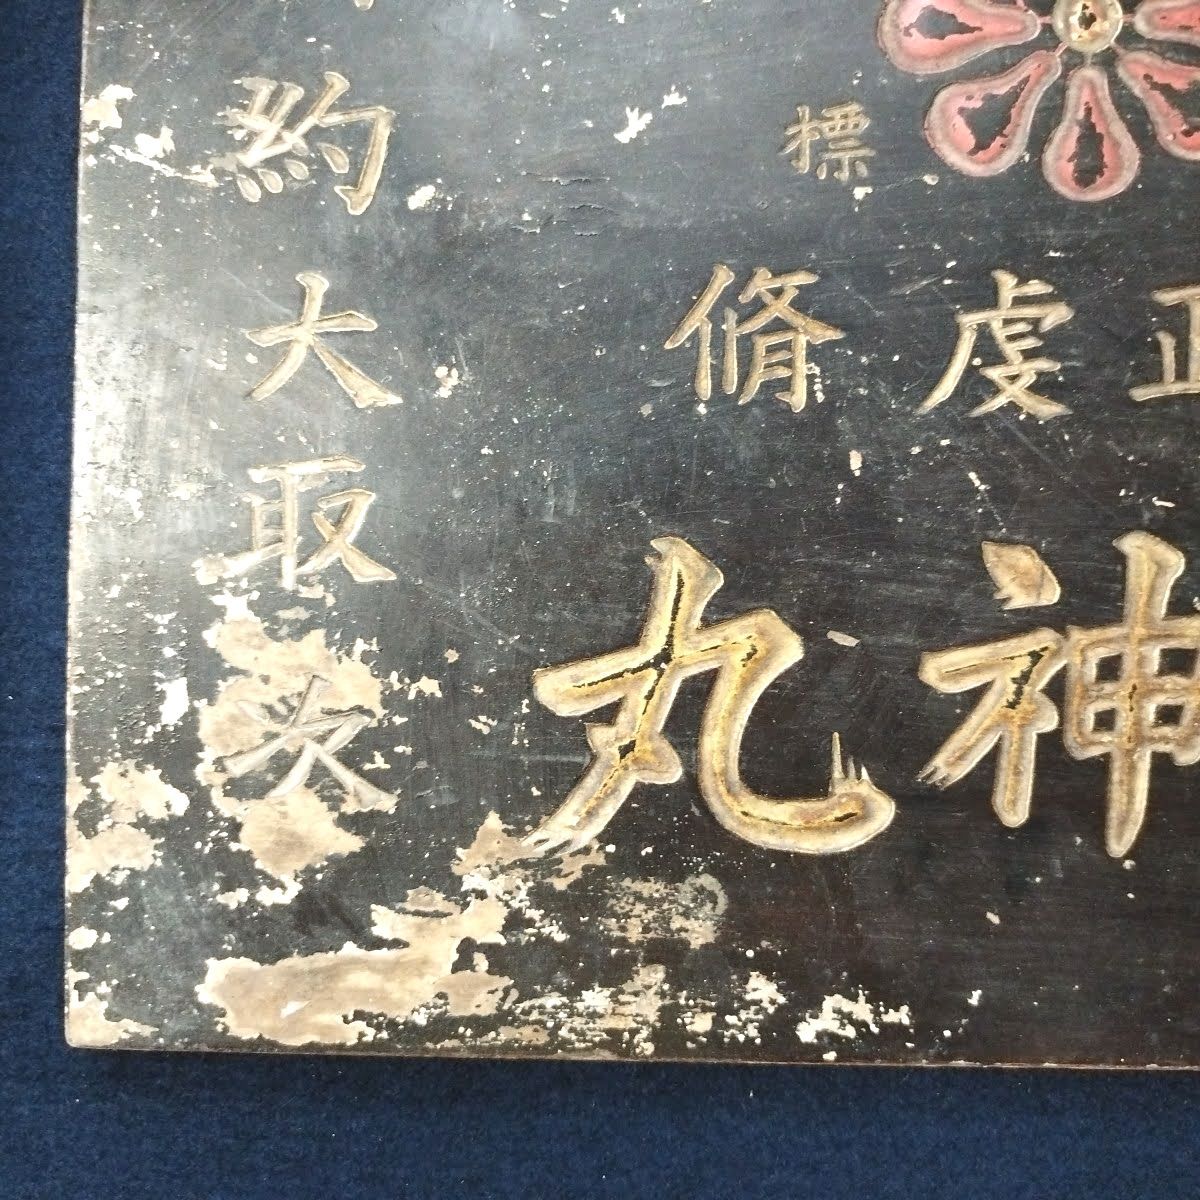 標
正虔脩
神丸
約大取次